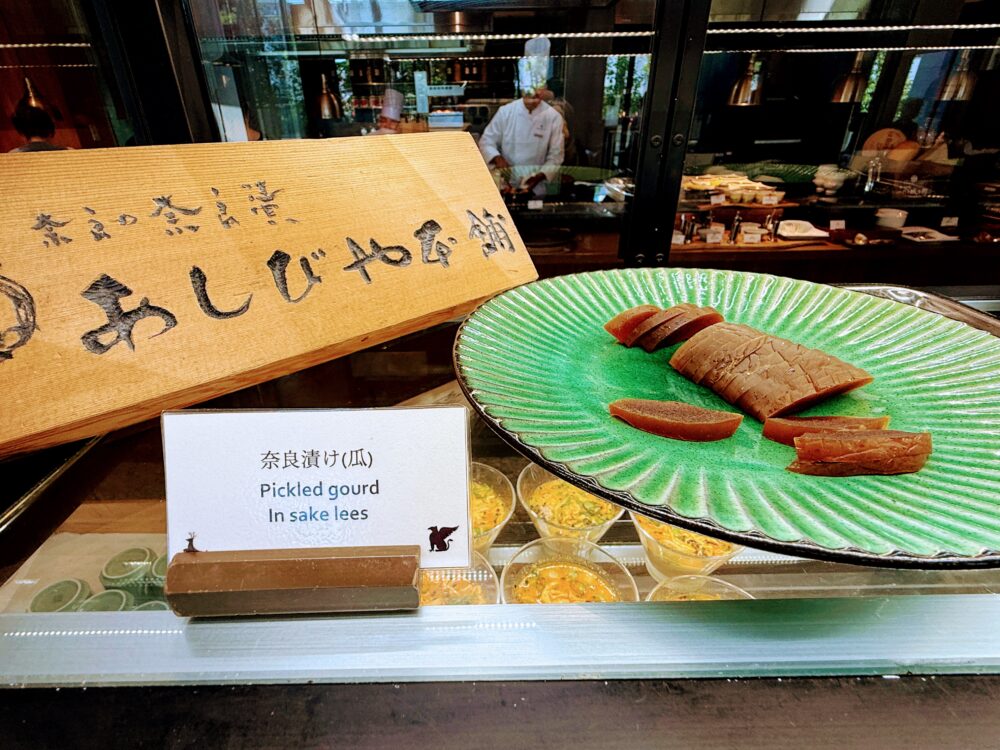 奈良の奈良漬
あしびや本舗
奈良漬け(瓜)
Pickled gourd
In sake lees